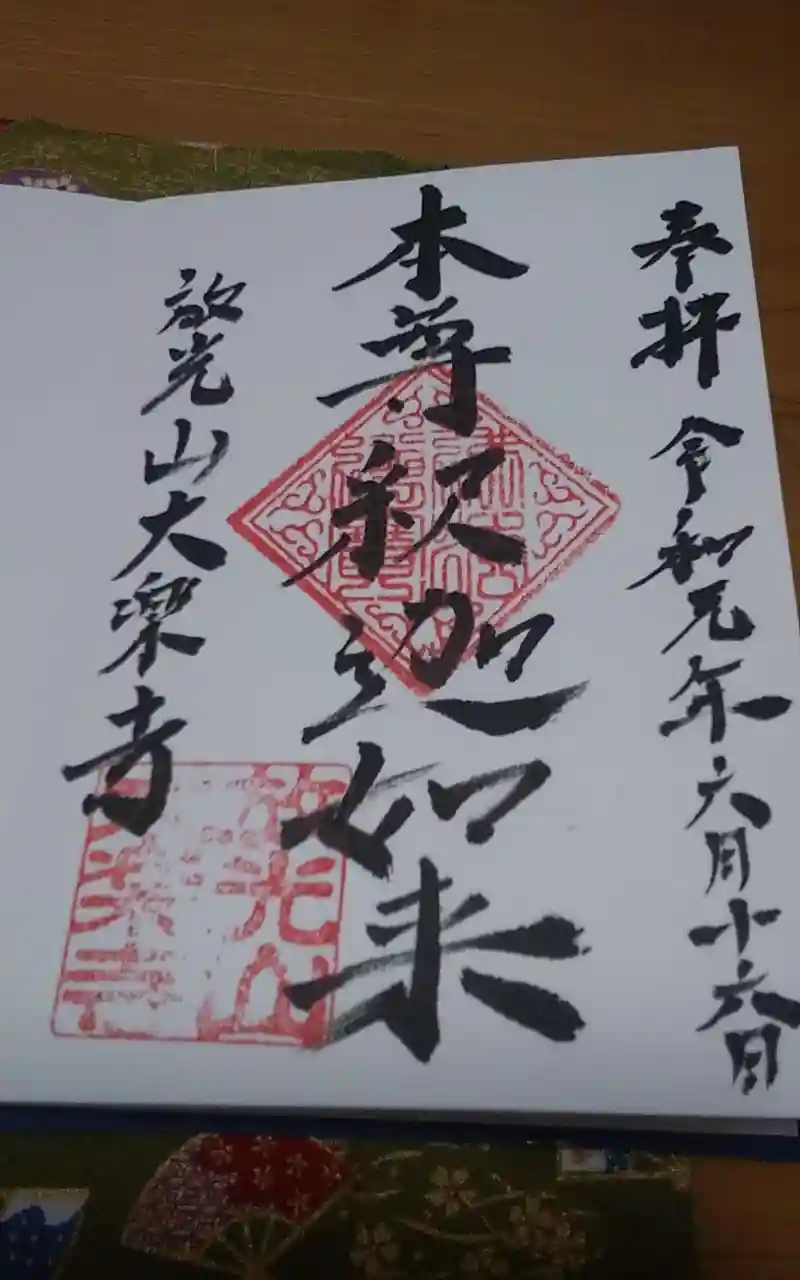 奉拝 令和元年六月十六日
本尊釈迦如来
放光山大楽寺
放光山
大楽寺